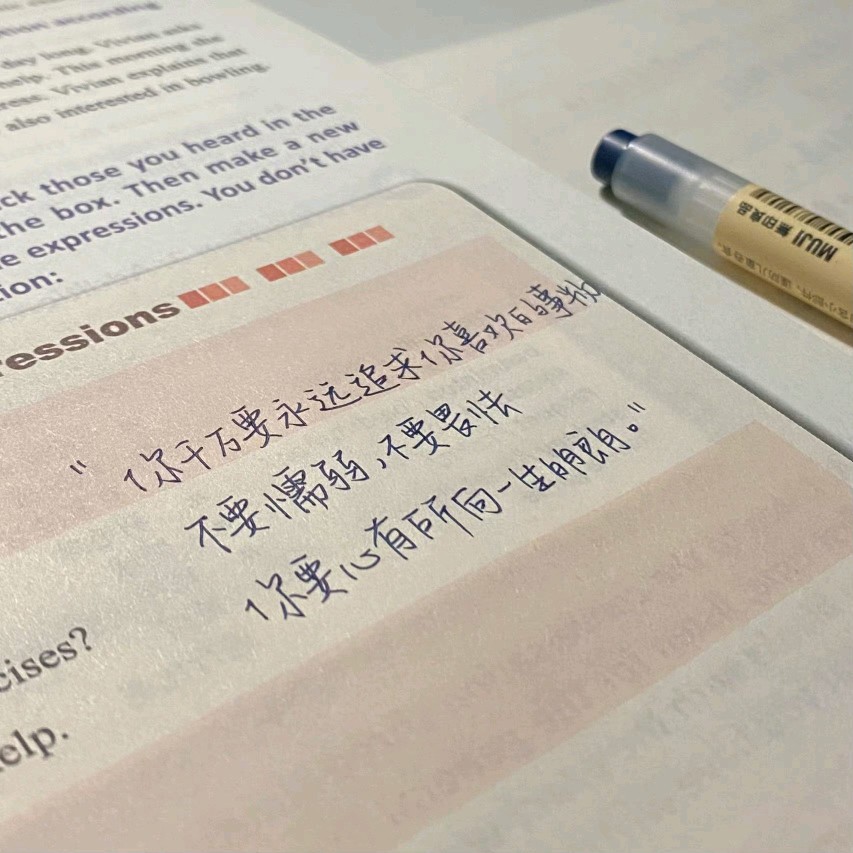 tion according
day long. Vivian asks
help. This morning she
Vivian explains that
also interested in bowling.
ck those you heard in the
the box. Then make a new
e expressions. You don't have
ion:
ressions
"你千万要永远追求你喜欢的事物
不要懦弱,不要畏怯
你要心有所向一生明朗。"
cises?
elp.
MUJI 無印良品